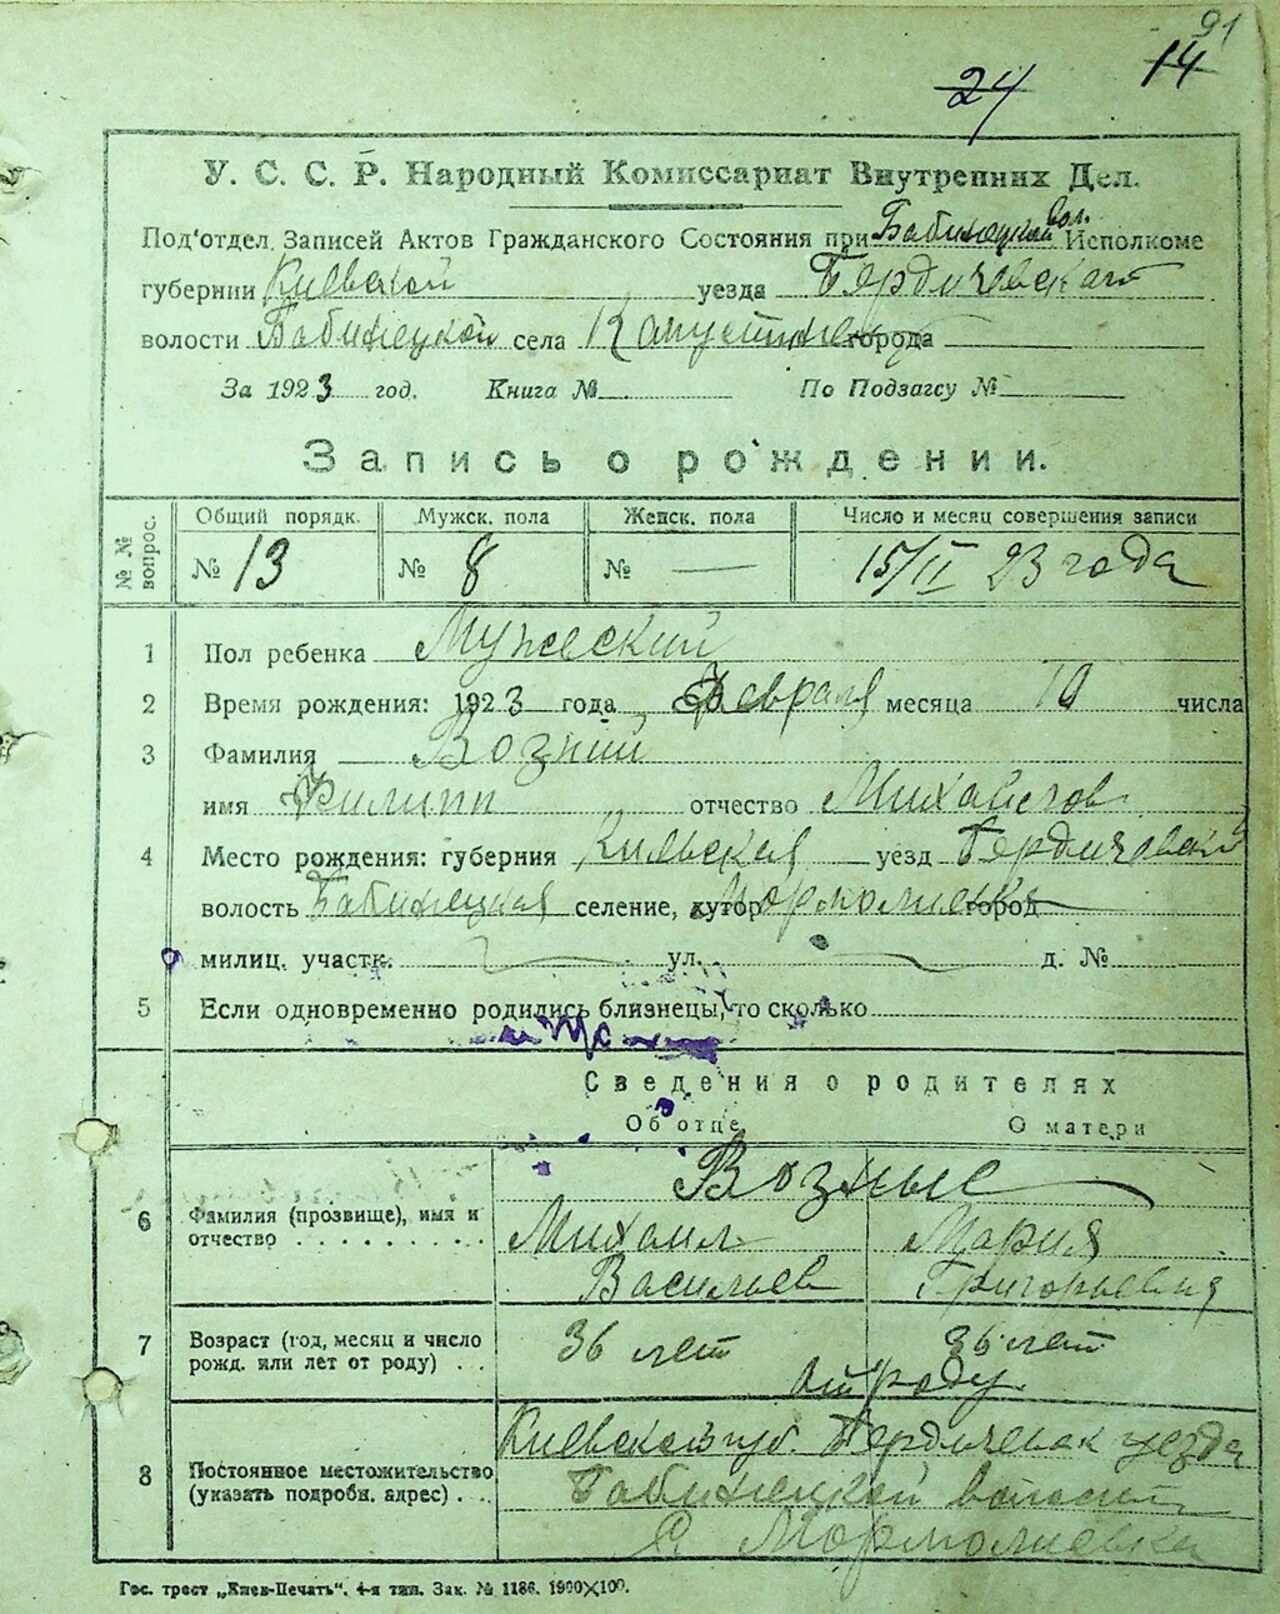 91
14
24
У. С. С. Р. Народный Комиссариат Внутренних Дел.
Под'отдел Записей Актов Гражданского Состояния при Бабинецком Вол. Исполкоме
губернии Киевской уезда Бердичевского
волости Бабинецкой села города
За 1923 год. Книга № По Подзагсу №
Запись о рождении.
№№ вопрос. Общий порядк. Мужск. пола Женск. пола Число и месяц совершения записи
№ 13 № 8 № — 15/II 23 года
1 Пол ребенка Мужеский
2 Время рождения: 1923 года Февраля месяца 10 числа
3 Фамилия Возний
имя Филипп отчество Михайлов
4 Место рождения: губерния Киевская уезд Бердичевский
волость Бабинецкая селение, хутор Мормолиевка город
милиц. участк. ул. д. №
5 Если одновременно родились близнецы, то сколько
Сведения о родителях
Об отце О матери
Возные
6 Фамилия (прозвище), имя и отчество . . . . . . . . . . Михаил Мария
Васильев Григорьевна
7 Возраст (год, месяц и число рожд. или лет от роду) . . 36 лет 36 лет
от роду
Киевской губ. уезда
8 Постоянное местожительство (указать подробн. адрес) . . . Бабинецкой волости
с. Мормолиевка
Гос. трест „Киев-Печать“. 4-я тип. Зак. № 1186. 1900×100.